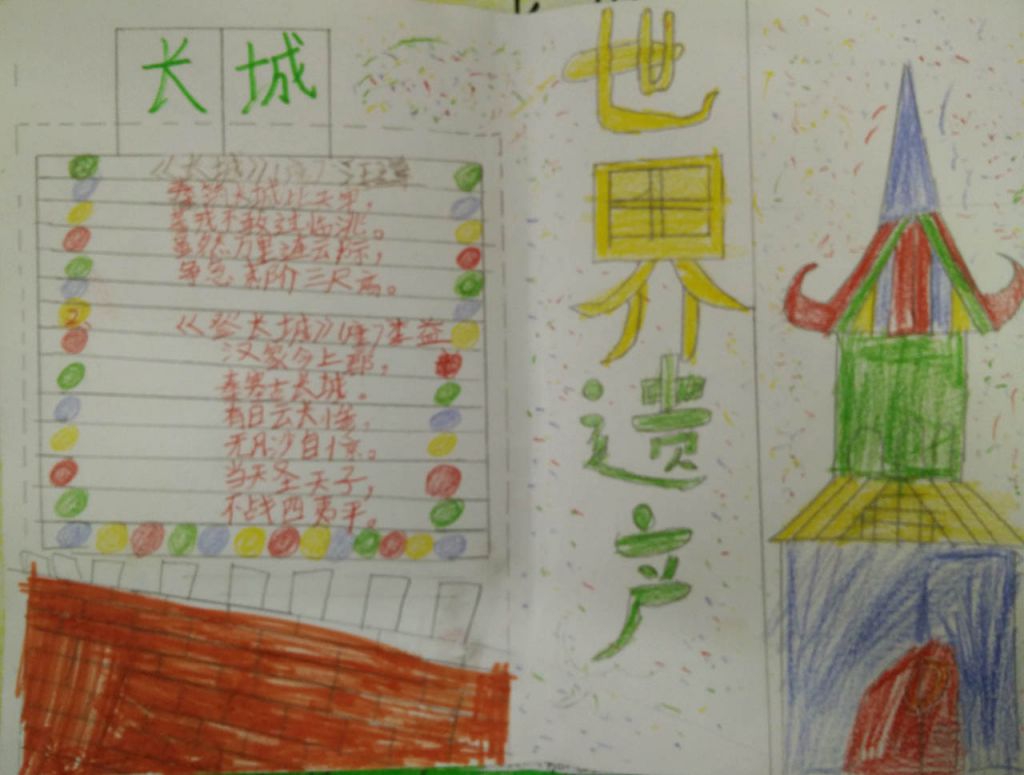 长城
《长城》(唐)汪遵
秦筑长城比铁牢,
蕃戎不敢过临洮。
虽然万里连云际,
争及尧阶三尺高。
2、《登长城》(唐)李益
汉家今上郡,
秦塞古长城。
有日云长惨,
无风沙自惊。
当天圣天子,
不战四夷平。
世界遗产